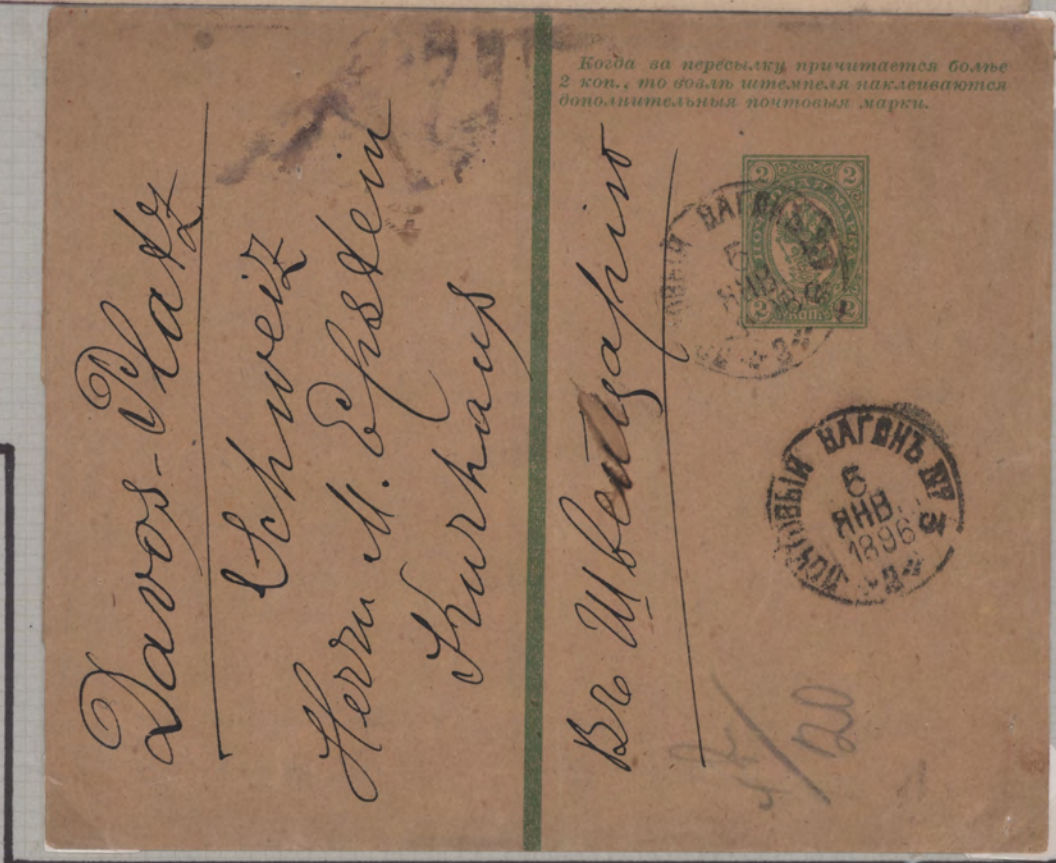 Когда за пересылку причитается болѣе
2 коп., то возлѣ штемпеля наклеиваются
дополнительныя почтовыя марки.
2 2
ПОЧТОВАЯ МАРКА
2 2
ПОЧТОВЫЙ ВАГОНЪ
5
ЯНВ.
*2*
ПОЧТОВЫЙ ВАГОНЪ № 3
5
ЯНВ.
1896
*2*
Въ Швейцарію
Davos-Platz
Schweiz
Herrn M. Epstein
Kurhaus
120